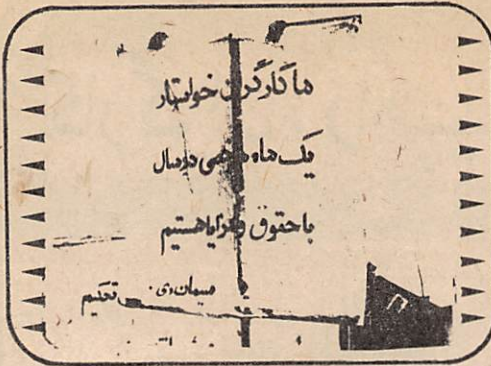 ما کارگران خواستار
یک ماه مرخصی در سال
با حقوق و مزایا هستیم
تحکیم